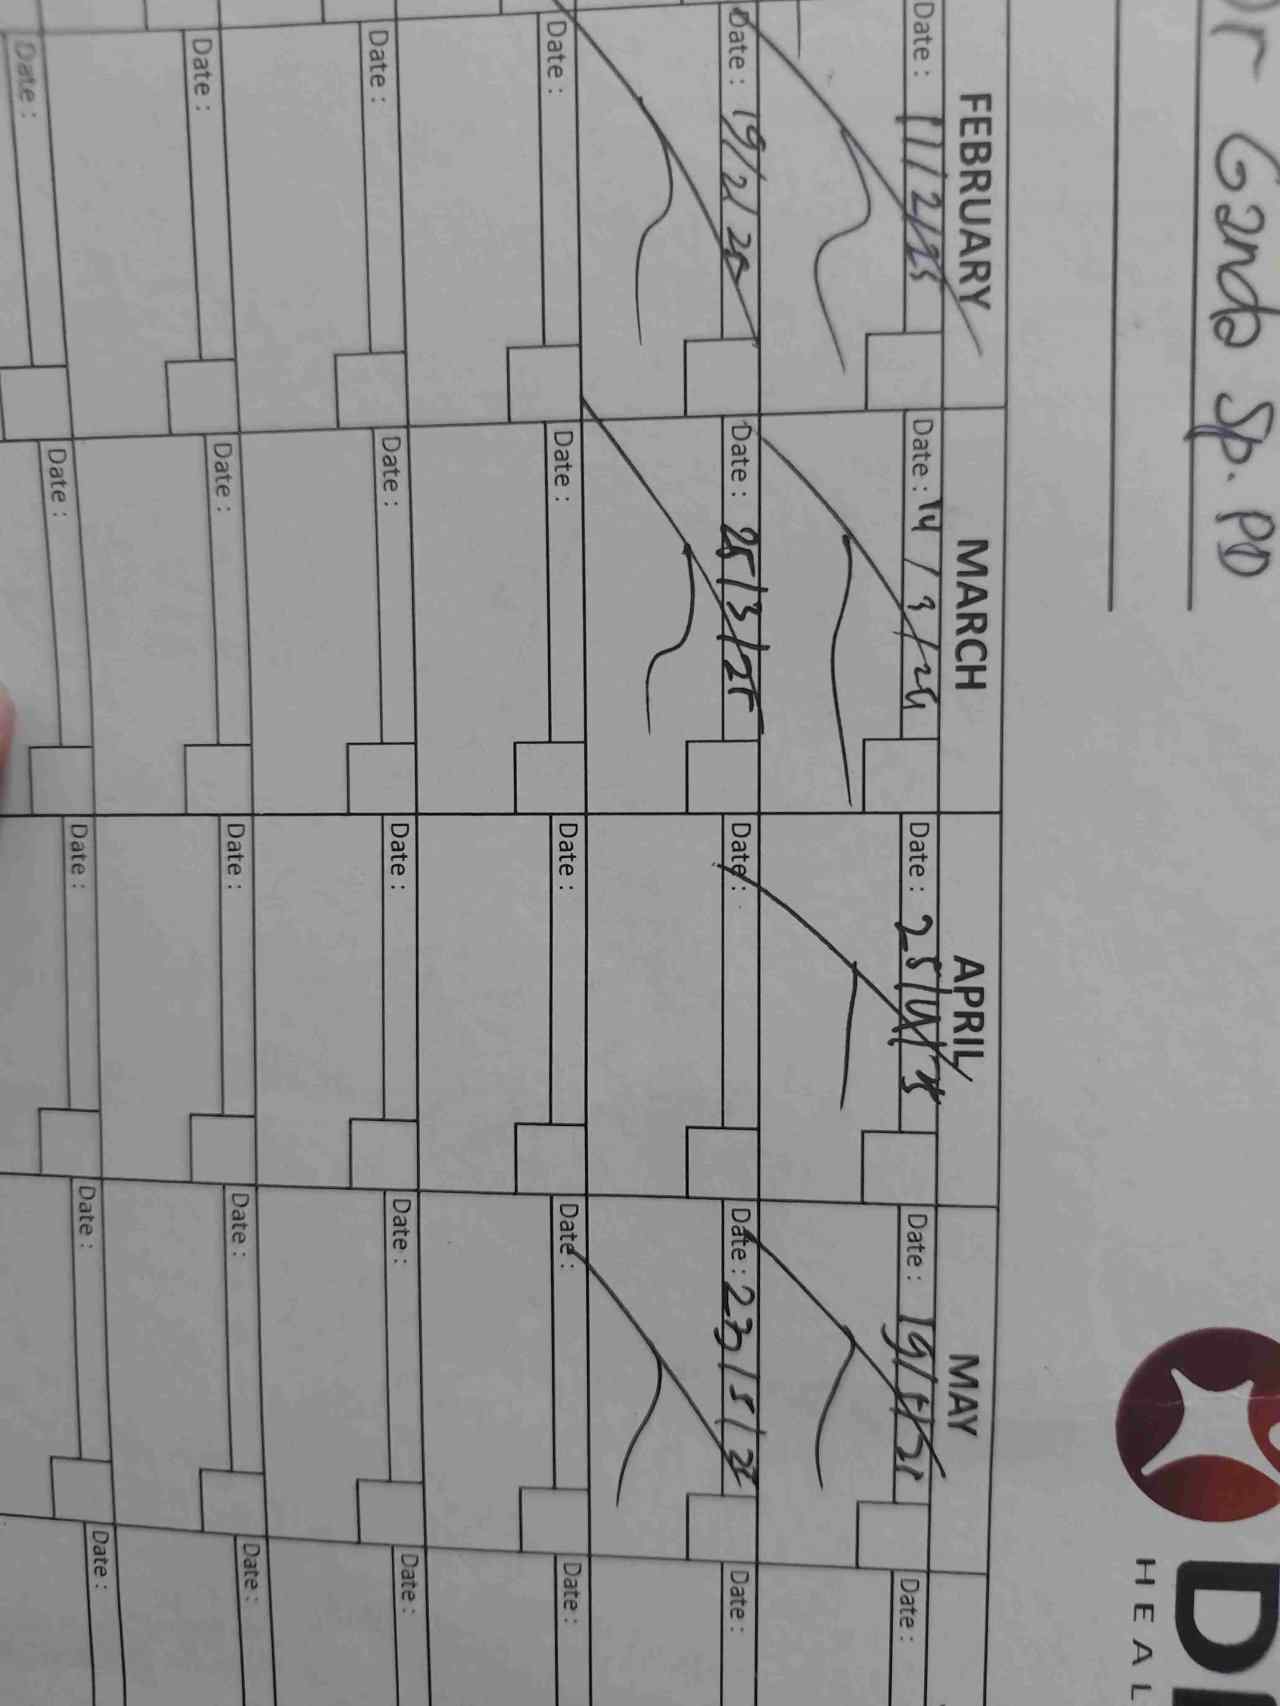 Dr Ganda Sp. PD
HEAL
FEBRUARY MARCH APRIL MAY
Date : 11/2/25 Date : 14/3/25 Date : 25/4/25 Date : 19/5/25 Date :
Date : 19/2/25 Date : 25/3/25 Date : Date : 23/5/25 Date :
Date : Date : Date : Date : Date :
Date : Date : Date : Date : Date :
Date : Date : Date : Date : Date :
Date : Date : Date : Date : Date :